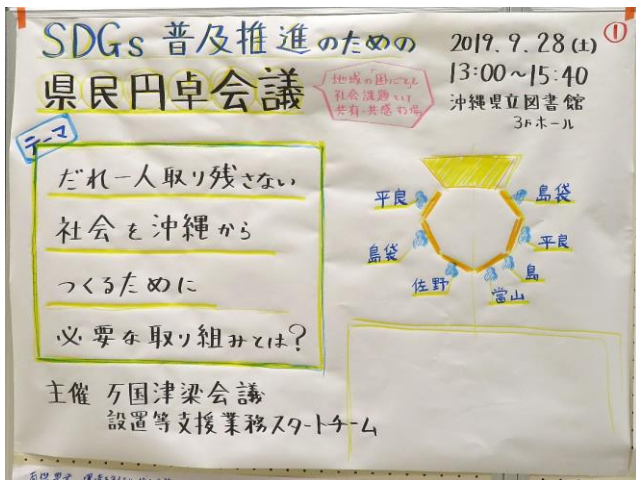 SDGs 普及推進のための
県民円卓会議
地域の困りごとを
社会課題として
共有・共感する場
2019.9.28(土)
13:00~15:40
沖縄県立図書館
3Fホール
①
テーマ
だれ一人取り残さない
社会を沖縄から
つくるために
必要な取り組みとは?
平良
島袋
佐野
當山
島
平良
島袋
主催 万国津梁会議
設置等支援業務スタートチーム